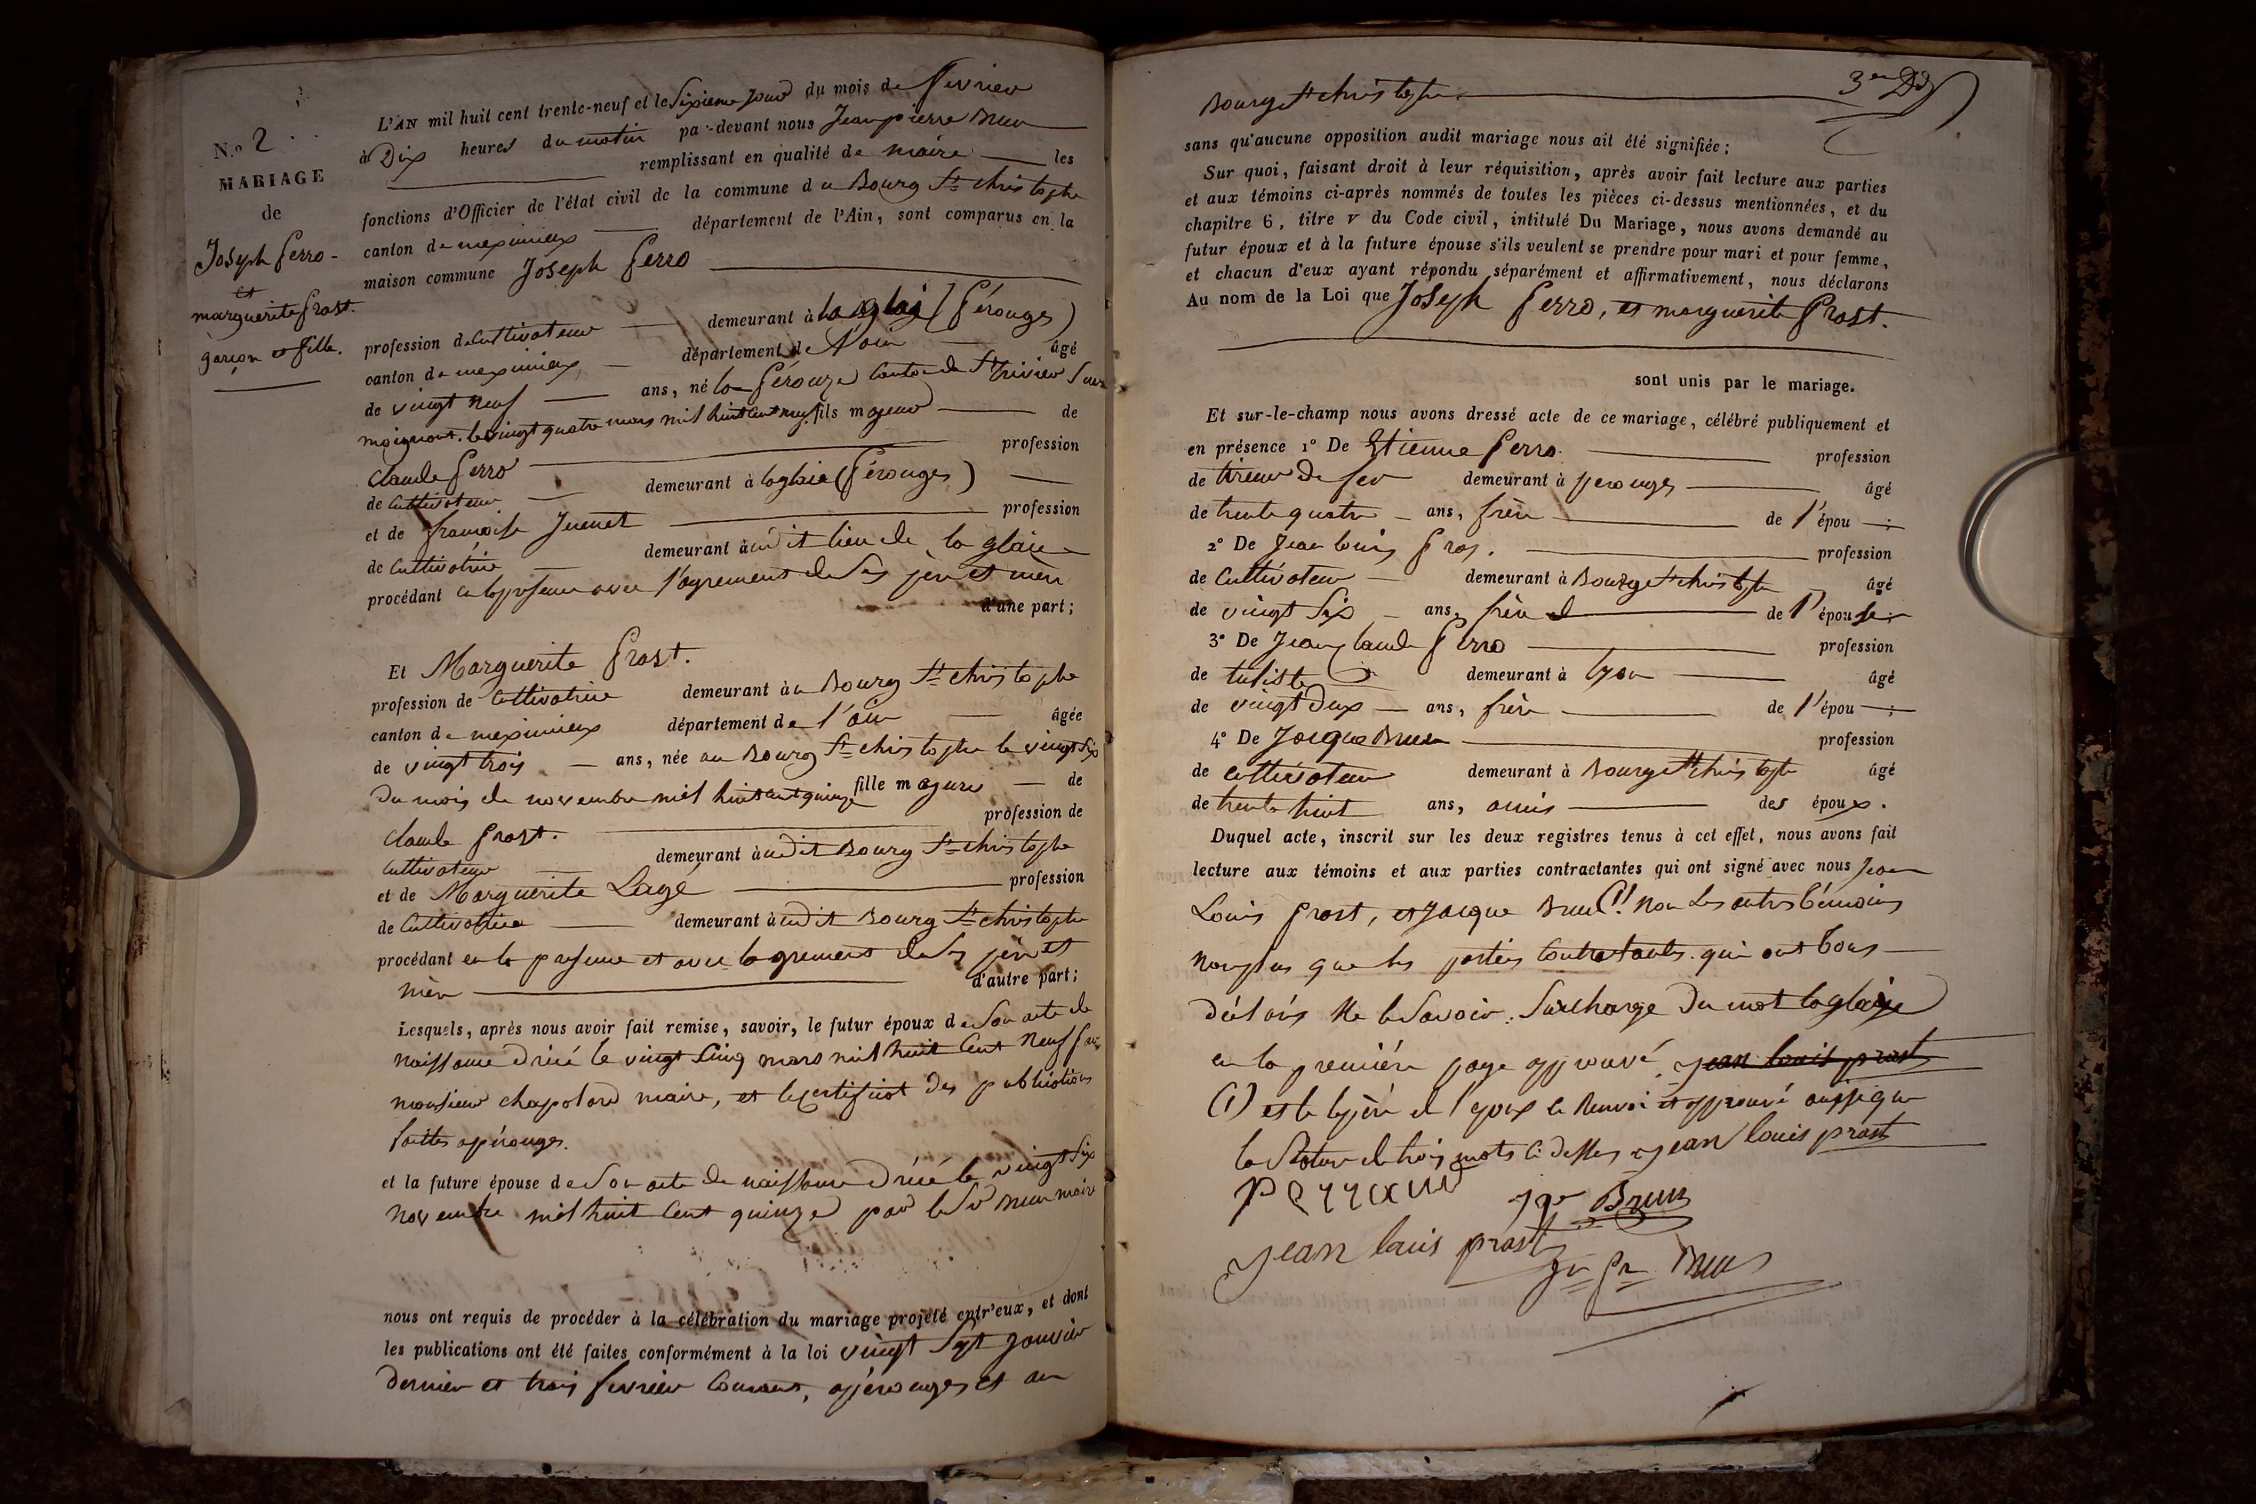 N.o 2
MARIAGE
de
Joseph Perro -
et
marguerite Prost.
garçon et fille.
L'AN mil huit cent trente-neuf et le Sixieme Jour du mois de fevrier
à Dix heures du matin par-devant nous Jean pierre Brun
remplissant en qualité de maire les
fonctions d'Officier de l'état civil de la commune du Bourg St christophe
canton de meximieux département de l'Ain, sont comparus en la
maison commune Joseph Perro
profession de Cultivateur demeurant à la glaie (Pérouges)
canton de meximieux département de l'ain âgé
de vingt neuf ans, né la Pérouze canton de St trivier Sur
moignans. le vingt quatre mars mil huit cent neuf. fils majeur de
claude Perro profession
de Cultivateur demeurant à laglaie (Pérouges)
et de francoise Juenet profession
de Cultivatrice demeurant audit lieu de la glaie
procédant en la présence avec l'agrement de Ses père et mère
d'une part;
Et Marguerite Prost.
profession de Cultivatrice demeurant au Bourg St christophe
canton de meximieux département de l'ain âgée
de vingt trois ans, née au Bourg St christophe le vingt Six
Du mois de novembre mil huit cent quinze fille majeure de
claude Prost. profession de
Cultivateur demeurant audit Bourg St christophe
et de Marguerite Lagé profession
de Cultivatrice demeurant audit Bourg St christophe
procédant en la présence et avec lagrement de Ses père et
mère d'autre part;
Lesquels, après nous avoir fait remise, savoir, le futur époux de Son acte de
naissance Dricé le vingt Cinq mars mil huit Cent neuf par
monsieur chapolard maire, et le certificat des publications
faittes apérouges.
et la future épouse de Son acte de naissance Dricé le vingt Six
Novembre mil huit Cent quinze par le Sr Brun maire
nous ont requis de procéder à la célébration du mariage projeté entr'eux, et dont
les publications ont été faites conformément à la loi vingt Sept Janvier
dernier et trois fevrier Courant, apérouges et au
Bourg St christophe.
sans qu'aucune opposition audit mariage nous ait été signifiée;
Sur quoi, faisant droit à leur réquisition, après avoir fait lecture aux parties
et aux témoins ci-après nommés de toutes les pièces ci-dessus mentionnées, et du
chapitre 6, titre V du Code civil, intitulé Du Mariage, nous avons demandé au
futur époux et à la future épouse s'ils veulent se prendre pour mari et pour femme,
et chacun d'eux ayant répondu séparément et affirmativement, nous déclarons
Au nom de la Loi que Joseph Perro, et marguerite Prost.
sont unis par le mariage.
Et sur-le-champ nous avons dressé acte de ce mariage, célébré publiquement et
en présence 1° De Etienne Perro. profession
de tireur de fer demeurant à perouges âgé
de trente quatre ans, frère de l'épou ;
2° De Jean louis Pros. profession
de Cultivateur demeurant à Bourg St christophe âgé
de vingt Six ans, frère de l'épouse;
3° De Jean claude Perro profession
de tuliste demeurant à lyon âgé
de vingt Deux ans, frère de l'épou ;
4° De Jacque Brun profession
de cultivateur demeurant à Bourg St christophe âgé
de trente huit ans, amis des époux.
Duquel acte, inscrit sur les deux registres tenus à cet effet, nous avons fait
lecture aux témoins et aux parties contractantes qui ont signé avec nous Jean
Louis Prost, et Jacque Brun (1) non Les autres témoins
nonplus que les parties Contractantes. qui ont tous
déclarés Ne le Savoir. Surcharge Du mot laglaie
en la premiére page approuvé. jean louis prost
(1) et le père de l'epoux le Renvoi et approuvé aussi que
la Rature de trois mots Ci dessus jean louis prost
jqe Brun
jean louis prost
Jn Pre Brun